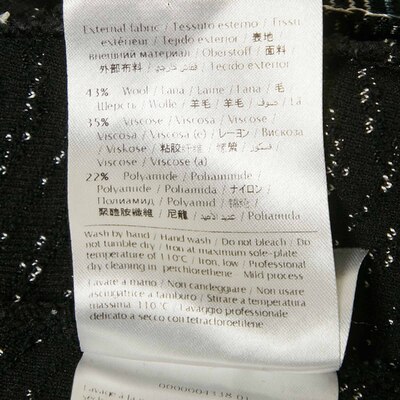 External fabric / Tessuto esterno / Tissu
extérieur / Tejido exterior / 表地
внешний материал / Oberstoff / 面料
外部布料 / قماش خارجي / Tecido exterior
43% Wool / Lana / Laine / Lana /
Шерсть / Wolle / 羊毛 / 羊毛 / صوف / Lã
35% Viscose / Viscosa / Viscose /
Viscosa / Viscosa (e) / レーヨン / Вискоза
/ Viskose / 粘胶纤维 / فسكوز /
Viscose / Viscose (a)
22% Polyamide / Poliammide /
Polyamide / Poliamida / ナイロン /
Полиамид / Polyamid / 锦纶 /
聚醯胺纖維 / 尼龍 / عديد الأميد / Poliamida
Wash by hand / Hand wash / Do not bleach / Do
not tumble dry / Iron at maximum sole-plate
temperature of 110°C / Iron, low / Professional
dry cleaning in perchlorethene Mild process
Lavare a mano / Non candeggiare / Non usare
asciugatrice a tamburo / Stirare a temperatura
massima 110°C / Lavaggio professionale
delicato a secco con tetracloroetilene
0000004338 01
Lavage à la